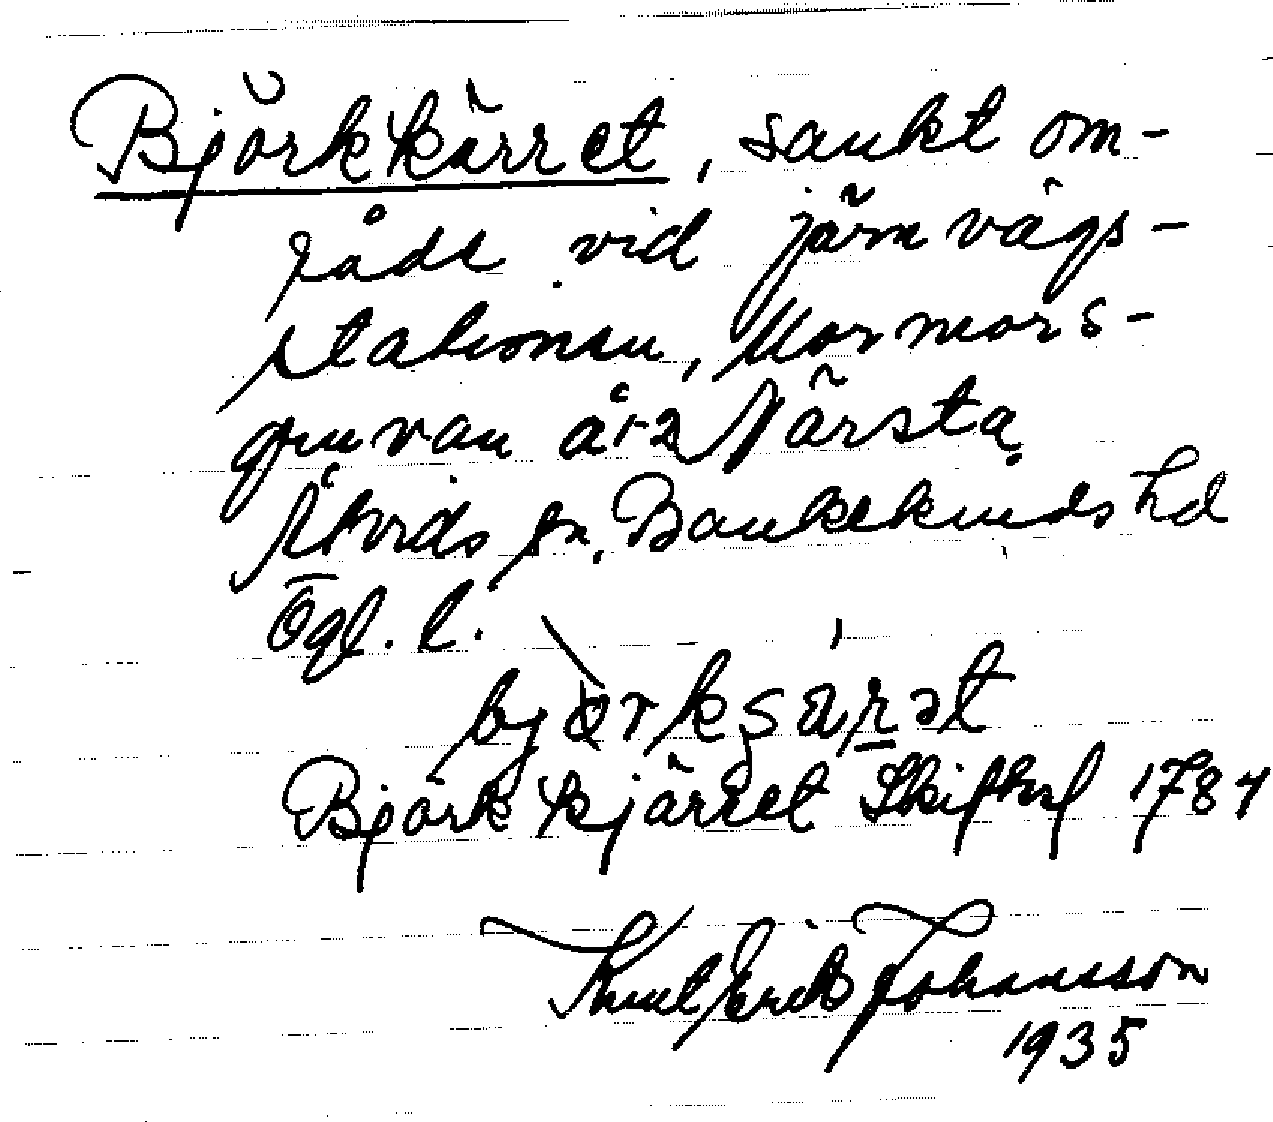 Björkkärret, sankt om-
råde vid järnvägs-
stationen, Mormors-
gruvan år 2 Närstą
Åtvids sn. Bankekinds hd
Ögl. l.
Björkkjärret Skifteshl 1787
Knut Erik Johansson
1935